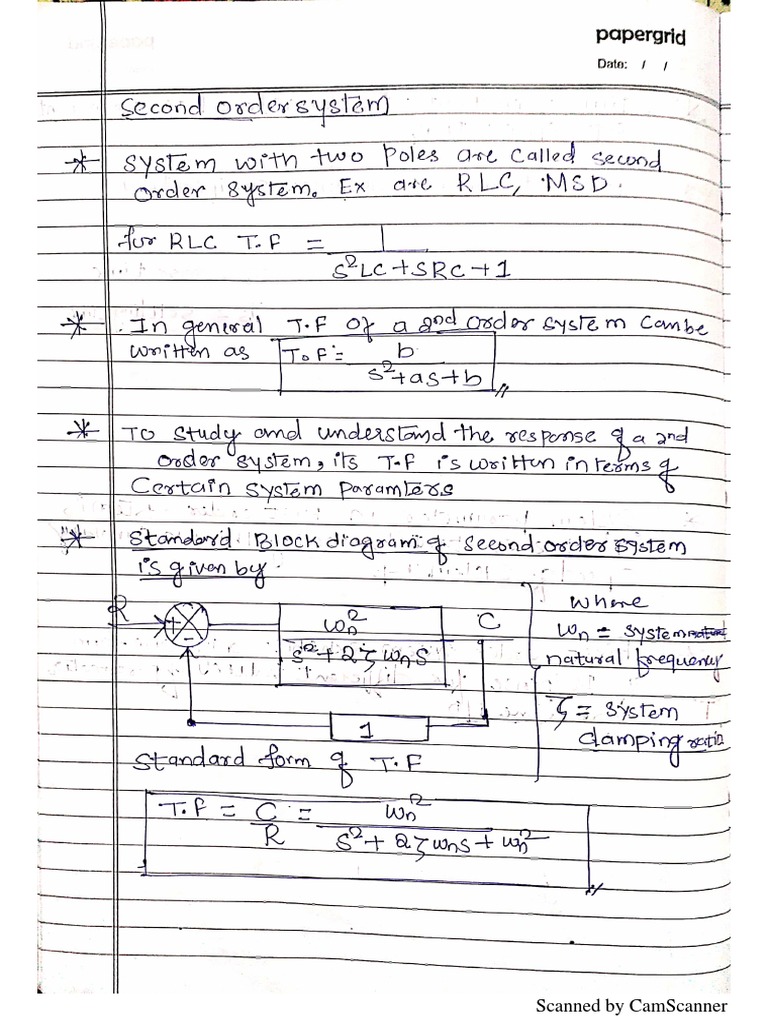 papergrid
Date: / /
Second order system
* System with two Poles are called second
order system. Ex are RLC, MSD.
for RLC T.F = 1 / (s²LC + SRC + 1)
* In general T.F of a 2nd order system can be
written as T.F = b / (s² + as + b)
* To study and understand the response of a 2nd
order system, its T.F is written in terms of
Certain system Paramters
* Standard Block diagram of second order system
is given by
R + - ωn² / (s² + 2ζωns) C
1
where
ωn = system
natural frequency
ζ = system
damping ratio
Standard form of T.F
T.F = C/R = ωn² / (s² + 2ζωns + ωn²)
Scanned by CamScanner